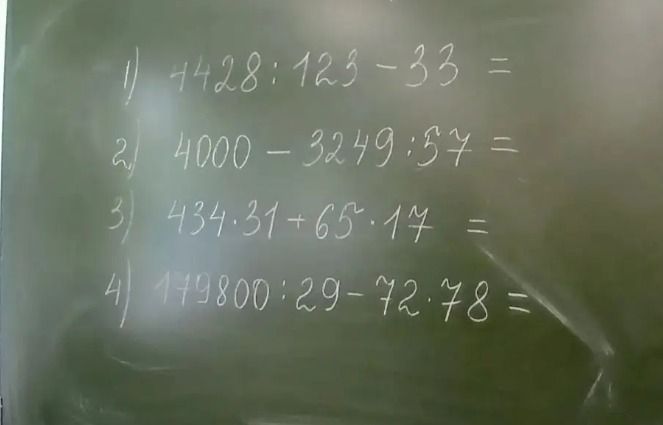 1) 4428:123-33 =
2) 4000-3249:57 =
3) 434·31+65·17 =
4) 179800:29-72·78 =